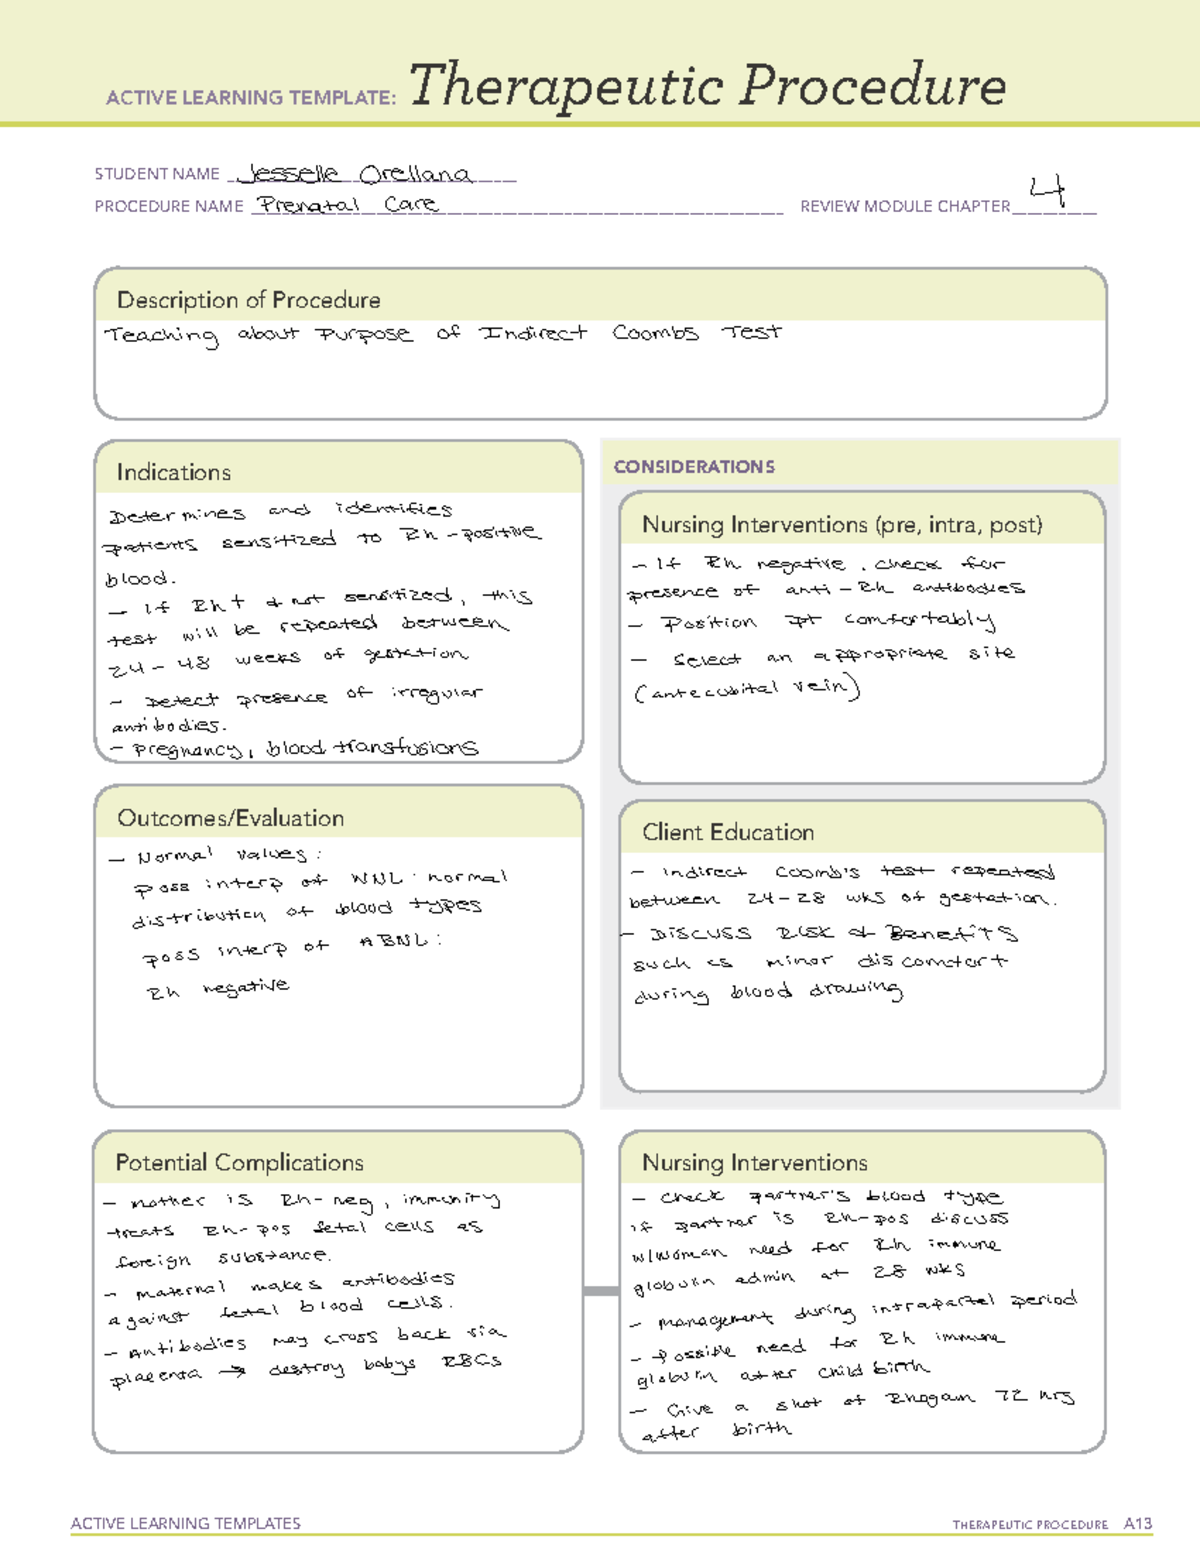 ACTIVE LEARNING TEMPLATE: Therapeutic Procedure
STUDENT NAME Jesselle Orellana
PROCEDURE NAME Prenatal Care REVIEW MODULE CHAPTER 4
Description of Procedure
Teaching about Purpose of Indirect Coombs Test
Indications
Determines and identifies
patients sensitized to Rh-positive
blood.
- If Rh+ & not sensitized, this
test will be repeated between
24-48 weeks of gestation
- Detect presence of irregular
antibodies.
- pregnancy, blood transfusions
CONSIDERATIONS
Nursing Interventions (pre, intra, post)
- If Rh negative, check for
presence of anti-Rh antibodies
- Position pt comfortably
- Select an appropriate site
(antecubital vein)
Outcomes/Evaluation
- Normal values:
poss interp of WNL: normal
distribution of blood types
poss interp of ABNL:
Rh negative
Client Education
- Indirect Coomb's test repeated
between 24-28 wks of gestation.
- Discuss Risk & Benefits
such as minor discomfort
during blood drawing
Potential Complications
- mother is Rh-neg, immunity
treats Rh-pos fetal cells as
foreign substance.
- maternal makes antibodies
against fetal blood cells.
- Antibodies may cross back via
placenta → destroy babys RBCs
Nursing Interventions
- check partner's blood type
if partner is Rh-pos discuss
w/woman need for Rh immune
globulin admin at 28 wks
- management during intrapartal period
- possible need for Rh immune
globulin after child birth
- Give a shot of Rhogam 72 hrs
after birth
ACTIVE LEARNING TEMPLATES THERAPEUTIC PROCEDURE A13